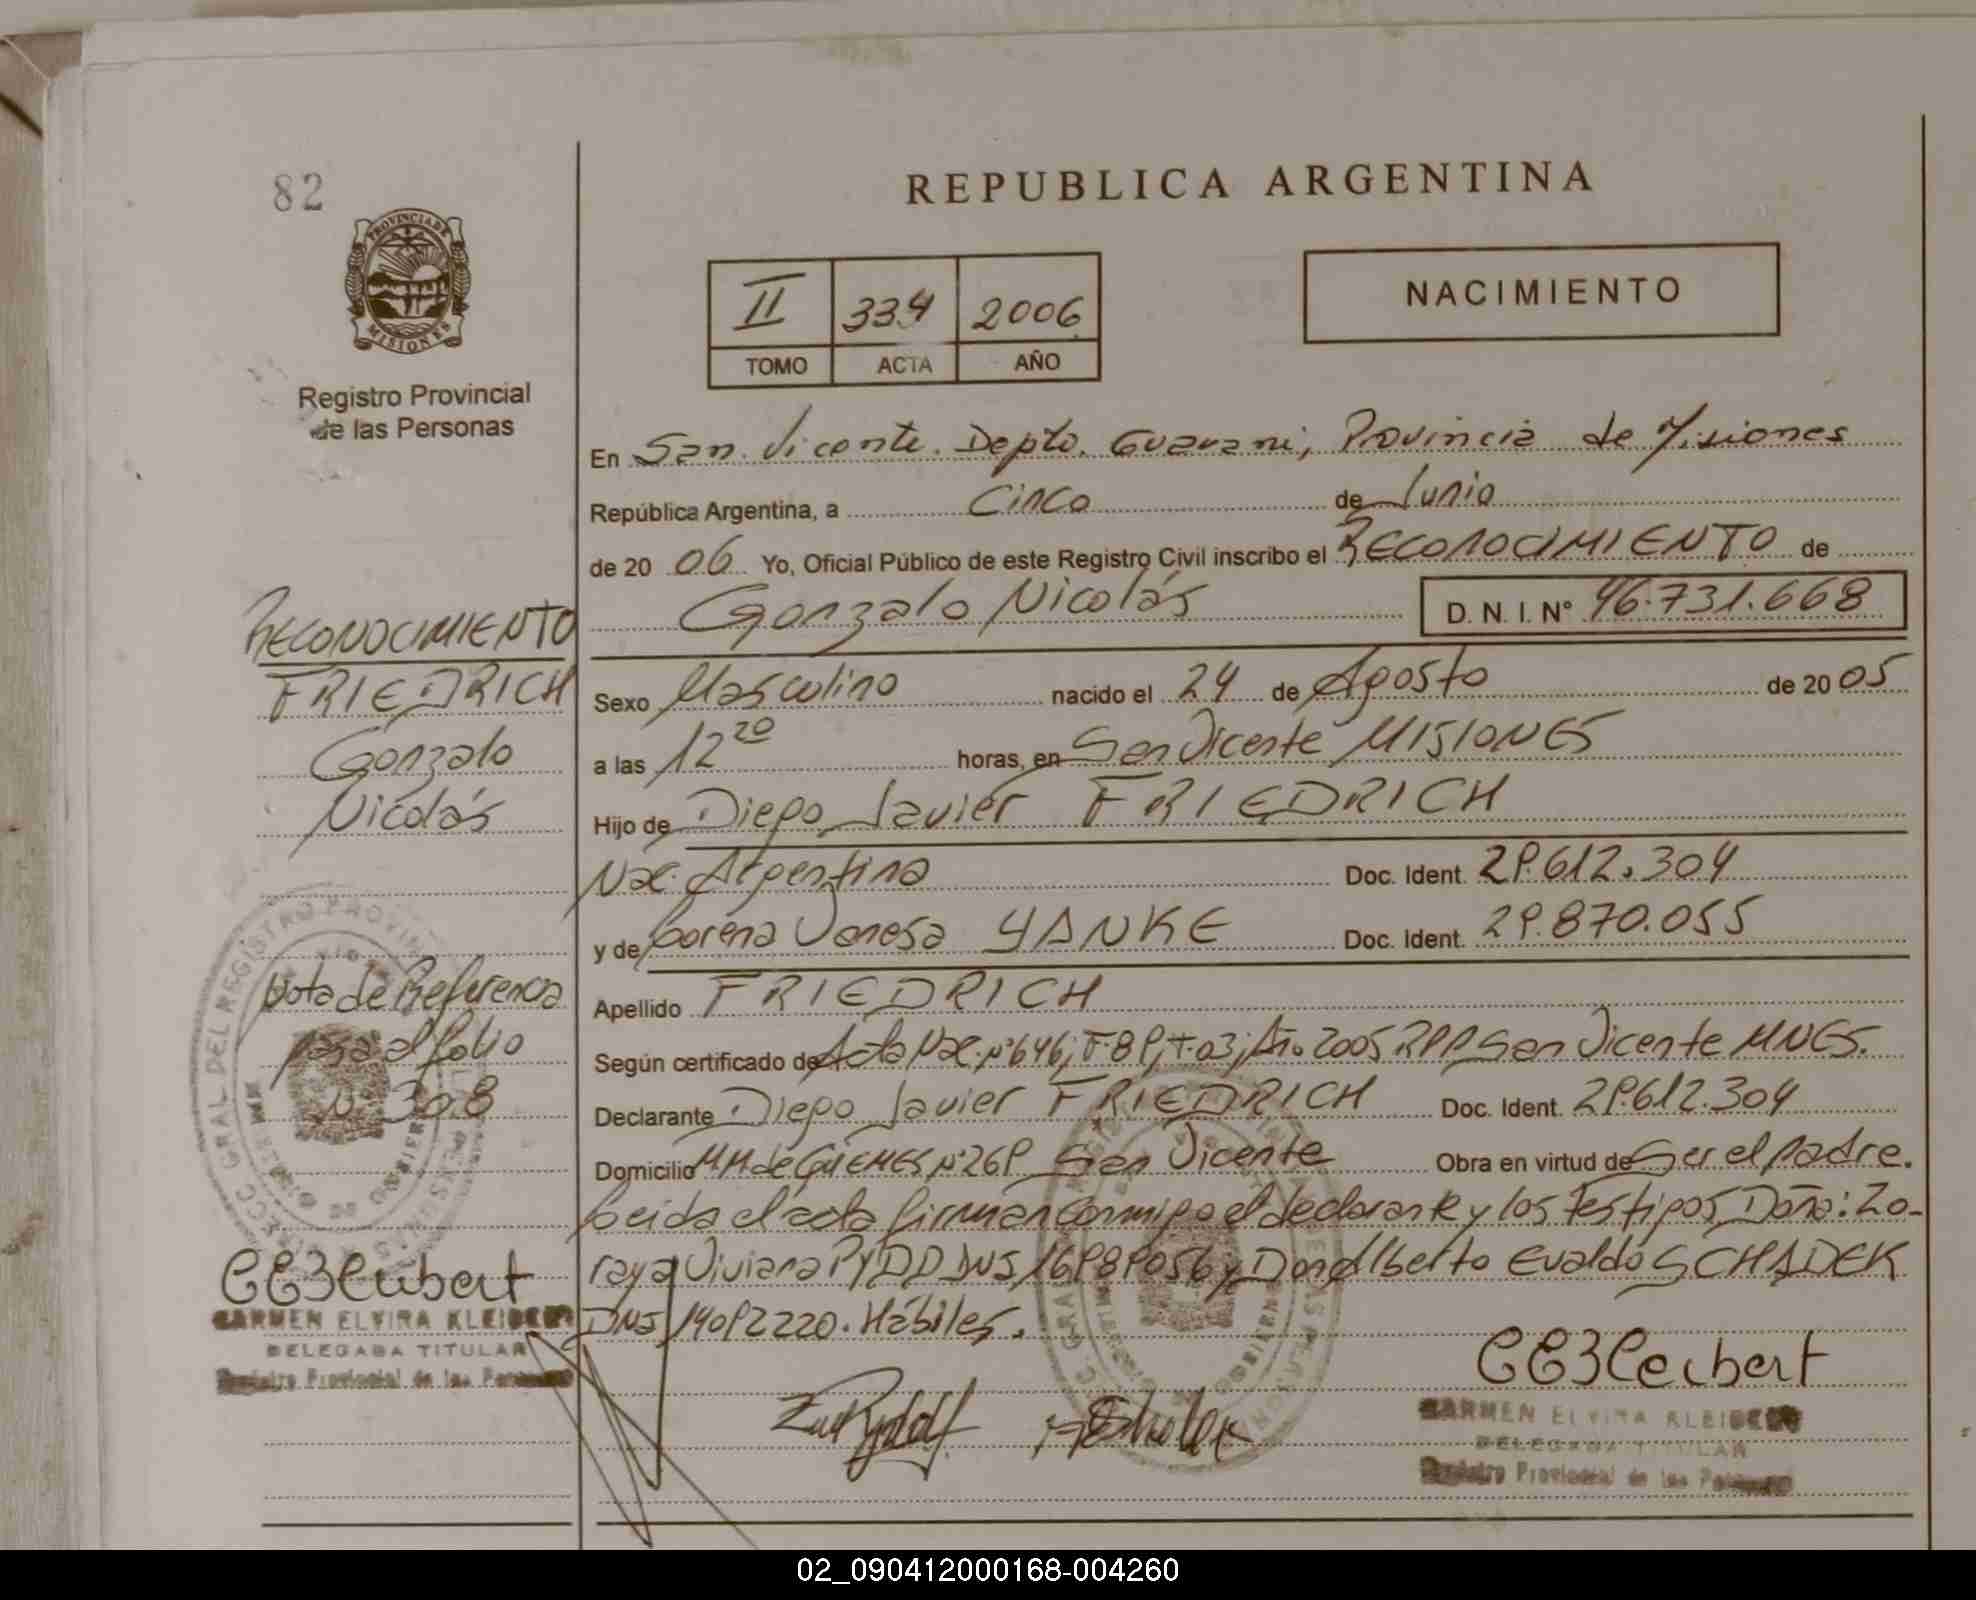 82
REPUBLICA ARGENTINA
PROVINCIA DE
MISIONES
Registro Provincial
de las Personas
II 334 2006
TOMO ACTA AÑO
NACIMIENTO
En San Vicente. Depto. Guarani, Provincia de Misiones
República Argentina, a Cinco de Junio
de 20 06 Yo, Oficial Público de este Registro Civil inscribo el RECONOCIMIENTO de
Gonzalo Nicolás D. N. I. N° 46.731.668
Sexo Masculino nacido el 24 de Agosto de 20 05
a las 12 20 horas, en San Vicente MISIONES
Hijo de Diego Javier FRIEDRICH
Nac. Argentina Doc. Ident. 29.612.304
y de Lorena Vanesa YANKE Doc. Ident. 29.870.055
Apellido FRIEDRICH
Según certificado de Acta Nac. N°646, F.89, T.03, Año 2005 RPP San Vicente MNES.
Declarante Diego Javier FRIEDRICH Doc. Ident. 29.612.304
Domicilio MM de GÜEMES N°269 San Vicente Obra en virtud de Ser el padre.
Leida el acta firman conmigo el declarante y los Testigos Doña: Zo-
raya Viviana DNJ 16989056 y Don Alberto Evaldo SCHADEK
DNJ 14092220. Hábiles.
RECONOCIMIENTO
FRIEDRICH
Gonzalo
Nicolás
Nota de Referencia
pasa al folio
N° 308
CARMEN ELVIRA
DELEGADA TITULAR
Registro Provincial de las Personas
CARMEN ELVIRA
DELEGADA TITULAR
Registro Provincial de las Personas
02_090412000168-004260